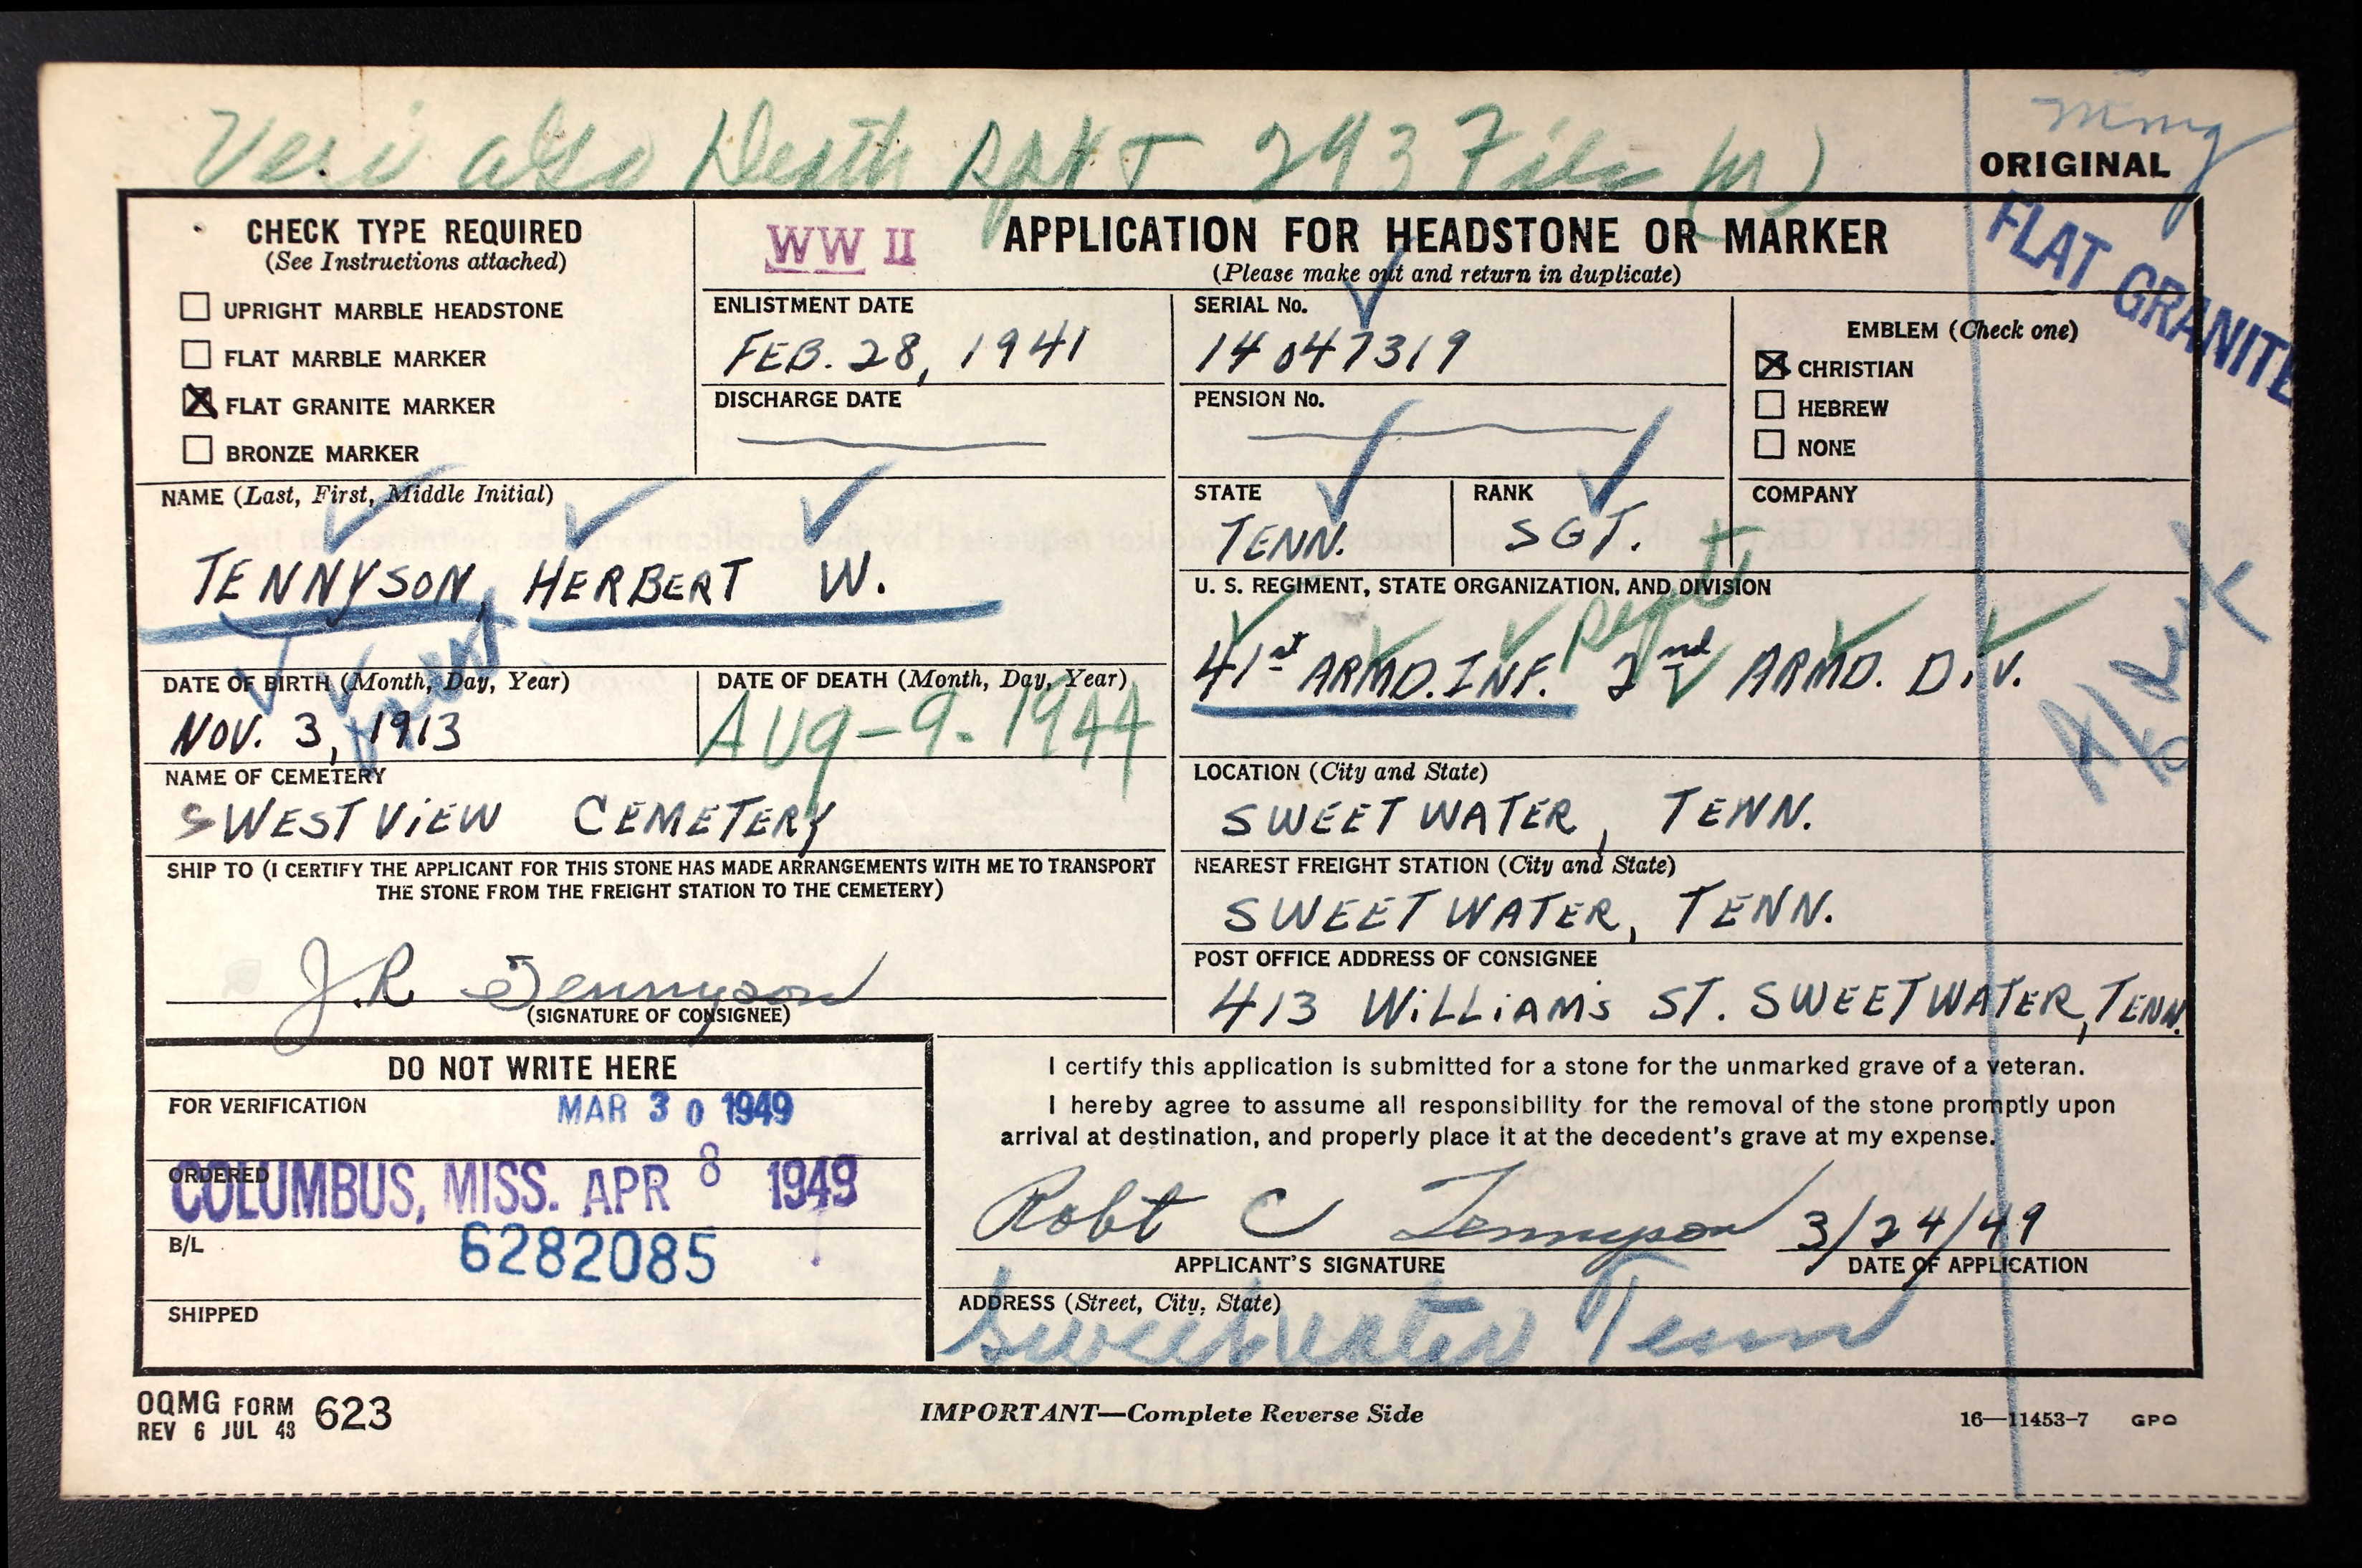 Veri also Death Rpt 293 File
mmg
ORIGINAL
FLAT GRANITE
CHECK TYPE REQUIRED
(See Instructions attached)
☐ UPRIGHT MARBLE HEADSTONE
☐ FLAT MARBLE MARKER
☒ FLAT GRANITE MARKER
☐ BRONZE MARKER
WW II
APPLICATION FOR HEADSTONE OR MARKER
(Please make out and return in duplicate)
ENLISTMENT DATE
FEB. 28, 1941
DISCHARGE DATE
SERIAL No.
14 047319
PENSION No.
EMBLEM (Check one)
☒ CHRISTIAN
☐ HEBREW
☐ NONE
NAME (Last, First, Middle Initial)
TENNYSON, HERBERT W.
STATE
TENN.
RANK
SGT.
COMPANY
U. S. REGIMENT, STATE ORGANIZATION, AND DIVISION
41st ARMD. INF. Regt 2nd ARMD. DIV.
DATE OF BIRTH (Month, Day, Year)
NOV. 3, 1913
DATE OF DEATH (Month, Day, Year)
AUG-9-1944
NAME OF CEMETERY
WEST VIEW CEMETERY
LOCATION (City and State)
SWEETWATER, TENN.
SHIP TO (I CERTIFY THE APPLICANT FOR THIS STONE HAS MADE ARRANGEMENTS WITH ME TO TRANSPORT
THE STONE FROM THE FREIGHT STATION TO THE CEMETERY)
J.R Tennyson
(SIGNATURE OF CONSIGNEE)
NEAREST FREIGHT STATION (City and State)
SWEETWATER, TENN.
POST OFFICE ADDRESS OF CONSIGNEE
413 WILLIAMS ST. SWEETWATER, TENN.
DO NOT WRITE HERE
FOR VERIFICATION
MAR 30 1949
ORDERED
COLUMBUS, MISS. APR 8 1949
B/L
6282085
SHIPPED
I certify this application is submitted for a stone for the unmarked grave of a veteran.
I hereby agree to assume all responsibility for the removal of the stone promptly upon
arrival at destination, and properly place it at the decedent's grave at my expense.
Robt C Tennyson 3/24/49
APPLICANT'S SIGNATURE
DATE OF APPLICATION
ADDRESS (Street, City, State)
Sweetwater Tenn
OQMG FORM 623
REV 6 JUL 43
IMPORTANT—Complete Reverse Side
16—11453-7 GPO